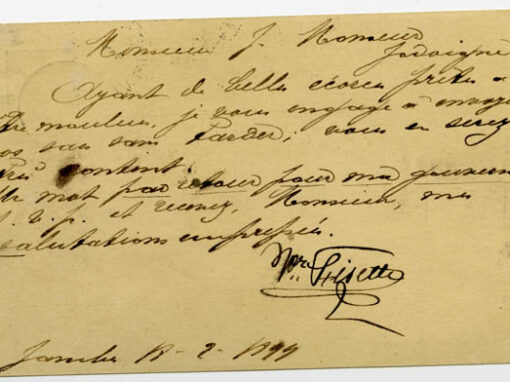 Monsieur J. Monseur
Jodoigne
Ayant de belles écorces prêtes à
être moulues, je vous engage à envoyer
vos sacs sans tarder, vous en serez
content.
Un mot par retour pour ma gouverne
S.V.p. et recevez, Monsieur, mes
salutations empressées.
Nor. Frisette
Jambes 18-2-1899